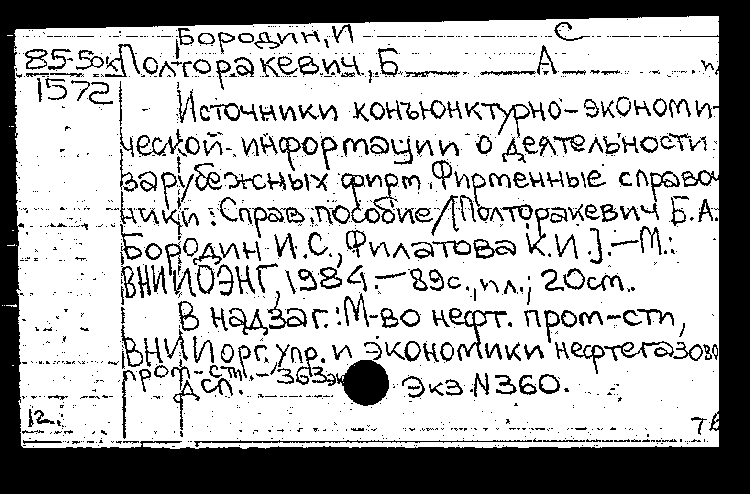 Бородин, И С
85-5ок Полторакевич, Б А
1572
Источники конъюнктурно-экономи-
ческой информации о деятельности
зарубежных фирм. Фирменные справоч
ники: Справ. пособие/[Полторакевич Б.А.
Бородин И.С., Филатова К.И.].—М.:
ВНИИОЭНГ, 1984.—89с., ил.; 20см.
В надзаг.: М-во нефт. пром-сти,
ВНИИ орг. упр. и экономики нефтегазово
пром-сти.— 363эк
дсп. Экз N360.
12.